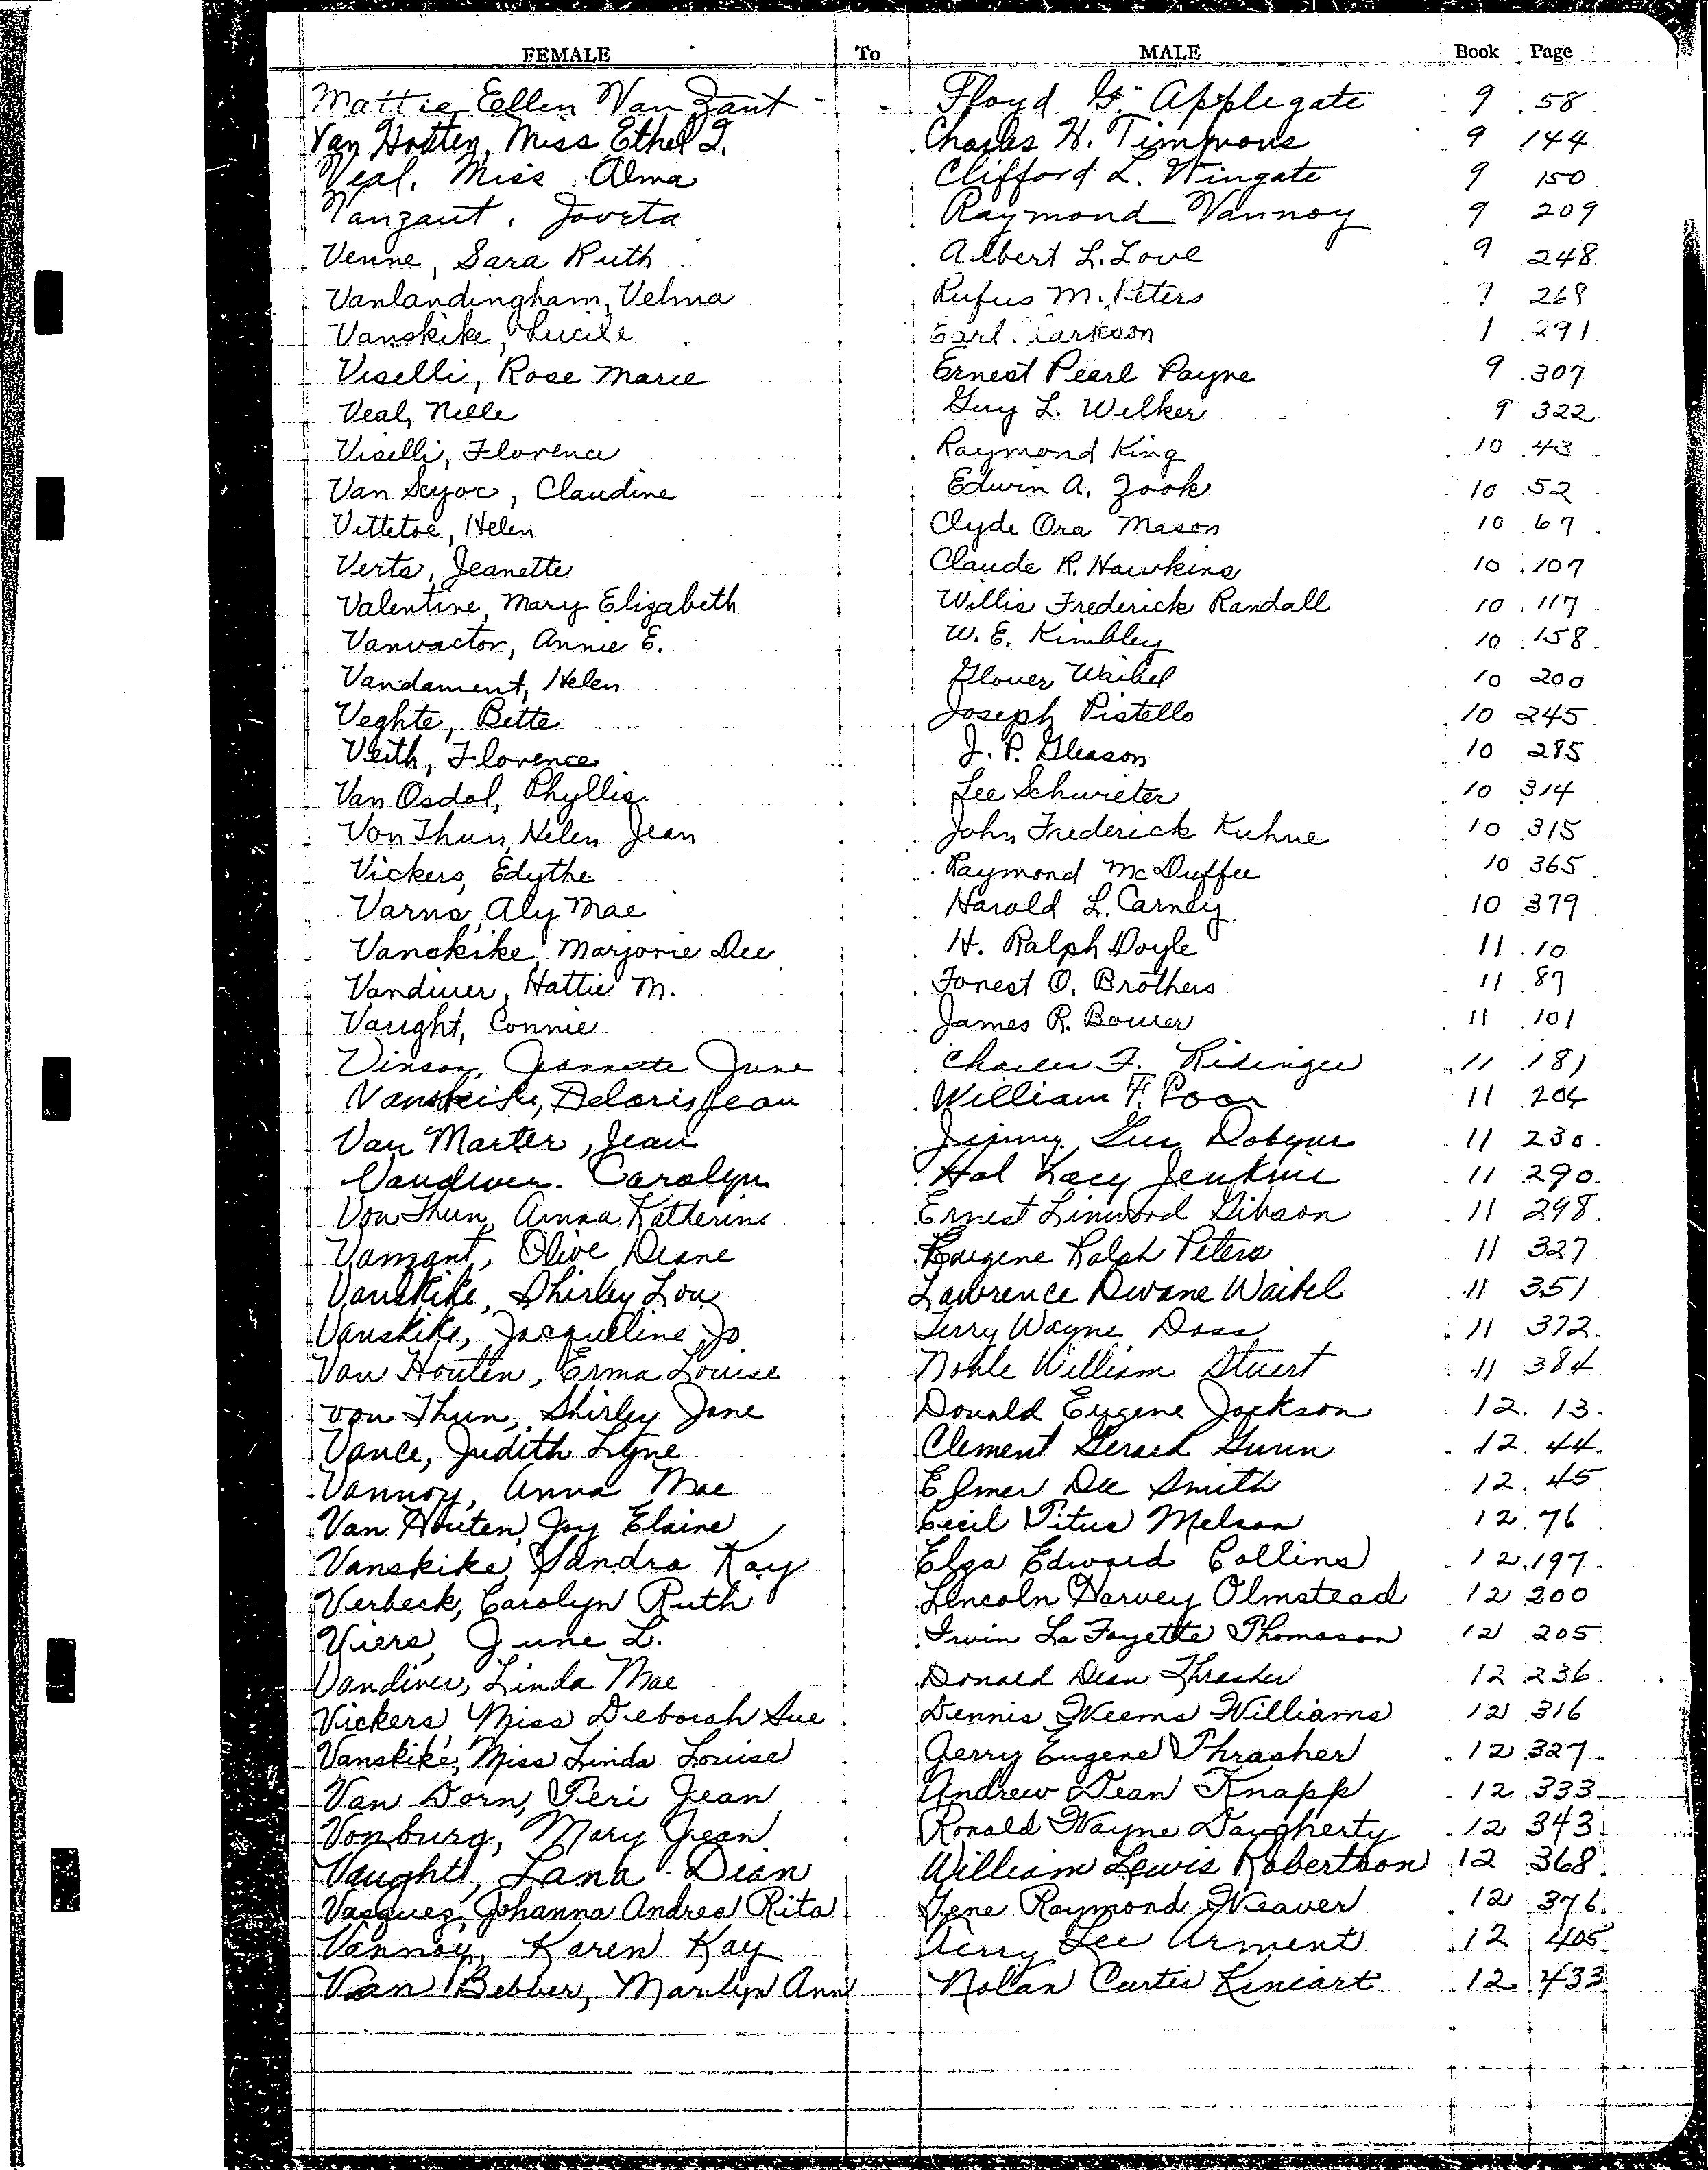 FEMALE To MALE Book Page
Mattie Eellen Van Zant Floyd G. Applegate 9 58
Van Hotten, Miss Ethel I. Charles H. Timmons 9 144
Veal, Miss Alma Clifford L. Wingate 9 150
Vanzant, Joveta Raymond Vannoy 9 209
Venne, Sara Ruth Albert L. Love 9 248
Vanlandingham, Velma Rufus M. Peters 9 268
Vanskike, Lucile Earl Clarkson 9 291
Viselli, Rose Marie Ernest Pearl Payne 9 307
Veal, Nelle Guy L. Welker 9 322
Viselli, Florence Raymond King 10 43
Van Scyoc, Claudine Edwin A. Zook 10 52
Vittetoe, Helen Clyde Ora Mason 10 67
Verts, Jeanette Claude R. Hawkins 10 107
Valentine, Mary Elizabeth Willis Frederick Randall 10 117
Vanvactor, Annie E. W. E. Kimbley 10 158
Vandament, Helen Glover Waibel 10 200
Veghte, Bette Joseph Pistello 10 245
Veith, Florence J. P. Gleason 10 285
Van Osdol, Phyllis Lee Schwieter 10 314
Von Thun, Helen Jean John Frederick Kuhne 10 315
Vickers, Edythe Raymond McDuffee 10 365
Varns, Aly Mae Harold L. Carney 10 379
Vanskike, Marjorie Dee H. Ralph Doyle 11 10
Vandiver, Hattie M. Forest O. Brothers 11 87
Vaught, Connie James R. Bower 11 101
Vinson, Jeannette June Charles F. Ridinger 11 181
Vanskike, Deloris Jean William F. Poor 11 204
Van Marter, Jean Jimmy Gus Dobyns 11 230
Vandiver, Carolyn Hal Kacy Jenkins 11 290
Von Thun, Anna Katherine Ernest Linwood Gibson 11 298
Vanzant, Olive Deane Eugene Ralph Peters 11 327
Vanskike, Shirley Lou Lawrence Dwane Waibel 11 351
Vanskike, Jacqueline Jo Terry Wayne Doss 11 372
Van Houten, Erma Louise Noble William Stuert 11 384
von Thun, Shirley Jane Donald Eugene Jackson 12 13
Vance, Judith Lyne Clement Gerard Gunn 12 44
Vannoy, Anna Mae Elmer Dee Smith 12 45
Van Houten, Joy Elaine Cecil Titus Melson 12 76
Vanskike, Sandra Kay Elga Edward Collins 12 197
Verbeck, Carolyn Ruth Lincoln Harvey Olmstead 12 200
Viers, June L. Irwin La Fayette Thomason 12 205
Vandiver, Linda Mae Donald Dean Thrasher 12 236
Vickers, Miss Deborah Sue Dennis Weems Williams 12 316
Vanskike, Miss Linda Louise Jerry Eugene Thrasher 12 327
Van Dorn, Teri Jean Andrew Dean Knapp 12 333
Vonburg, Mary Jean Ronald Wayne Daugherty 12 343
Vaught, Lana Dian William Lewis Robertson 12 368
Vasquez, Johanna Andrea Rita Gene Raymond Weaver 12 376
Vannoy, Karen Kay Terry Lee Arment 12 405
Van Bebber, Marilyn Ann Nolan Curtis Kincart 12 433